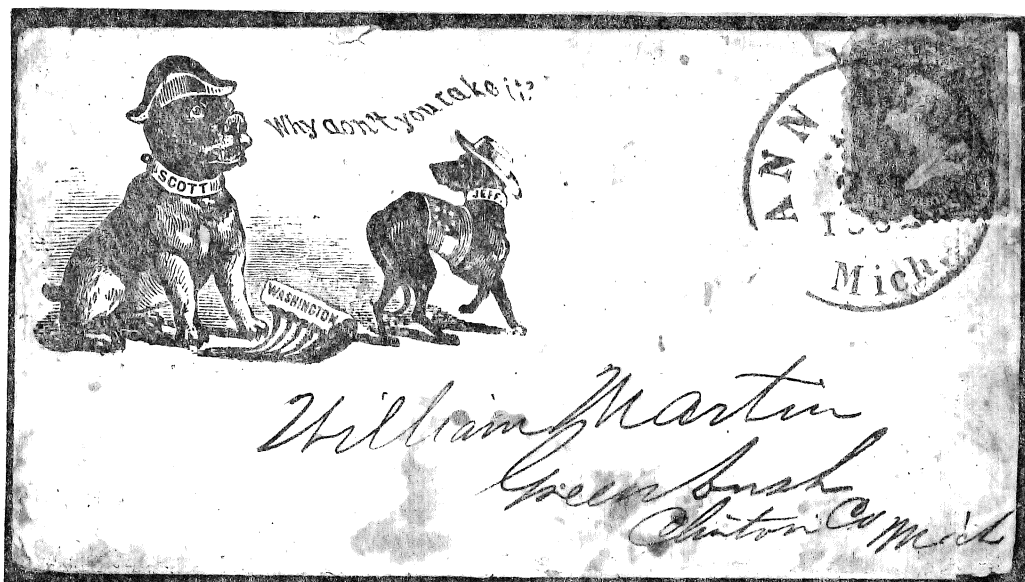 Why don't you take it?
SCOTT
JEFF.
WASHINGTON
ANN
Mich
William Martin
Greenbush
Clinton Co Mich